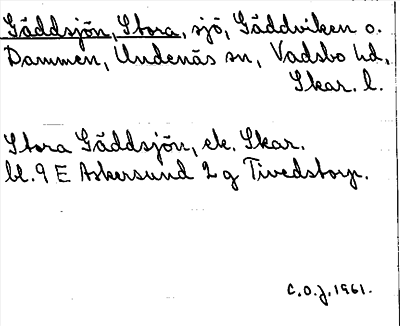 Gäddsjön, Stora, sjö, Gäddviken o.
Dammen, Undenäs sn, Vadsbo hd,
Skar. l.
Stora Gäddsjön, ek. Skar.
bl. 9 E Askersund 2 g Tivedstorp.
C.O.J. 1961.